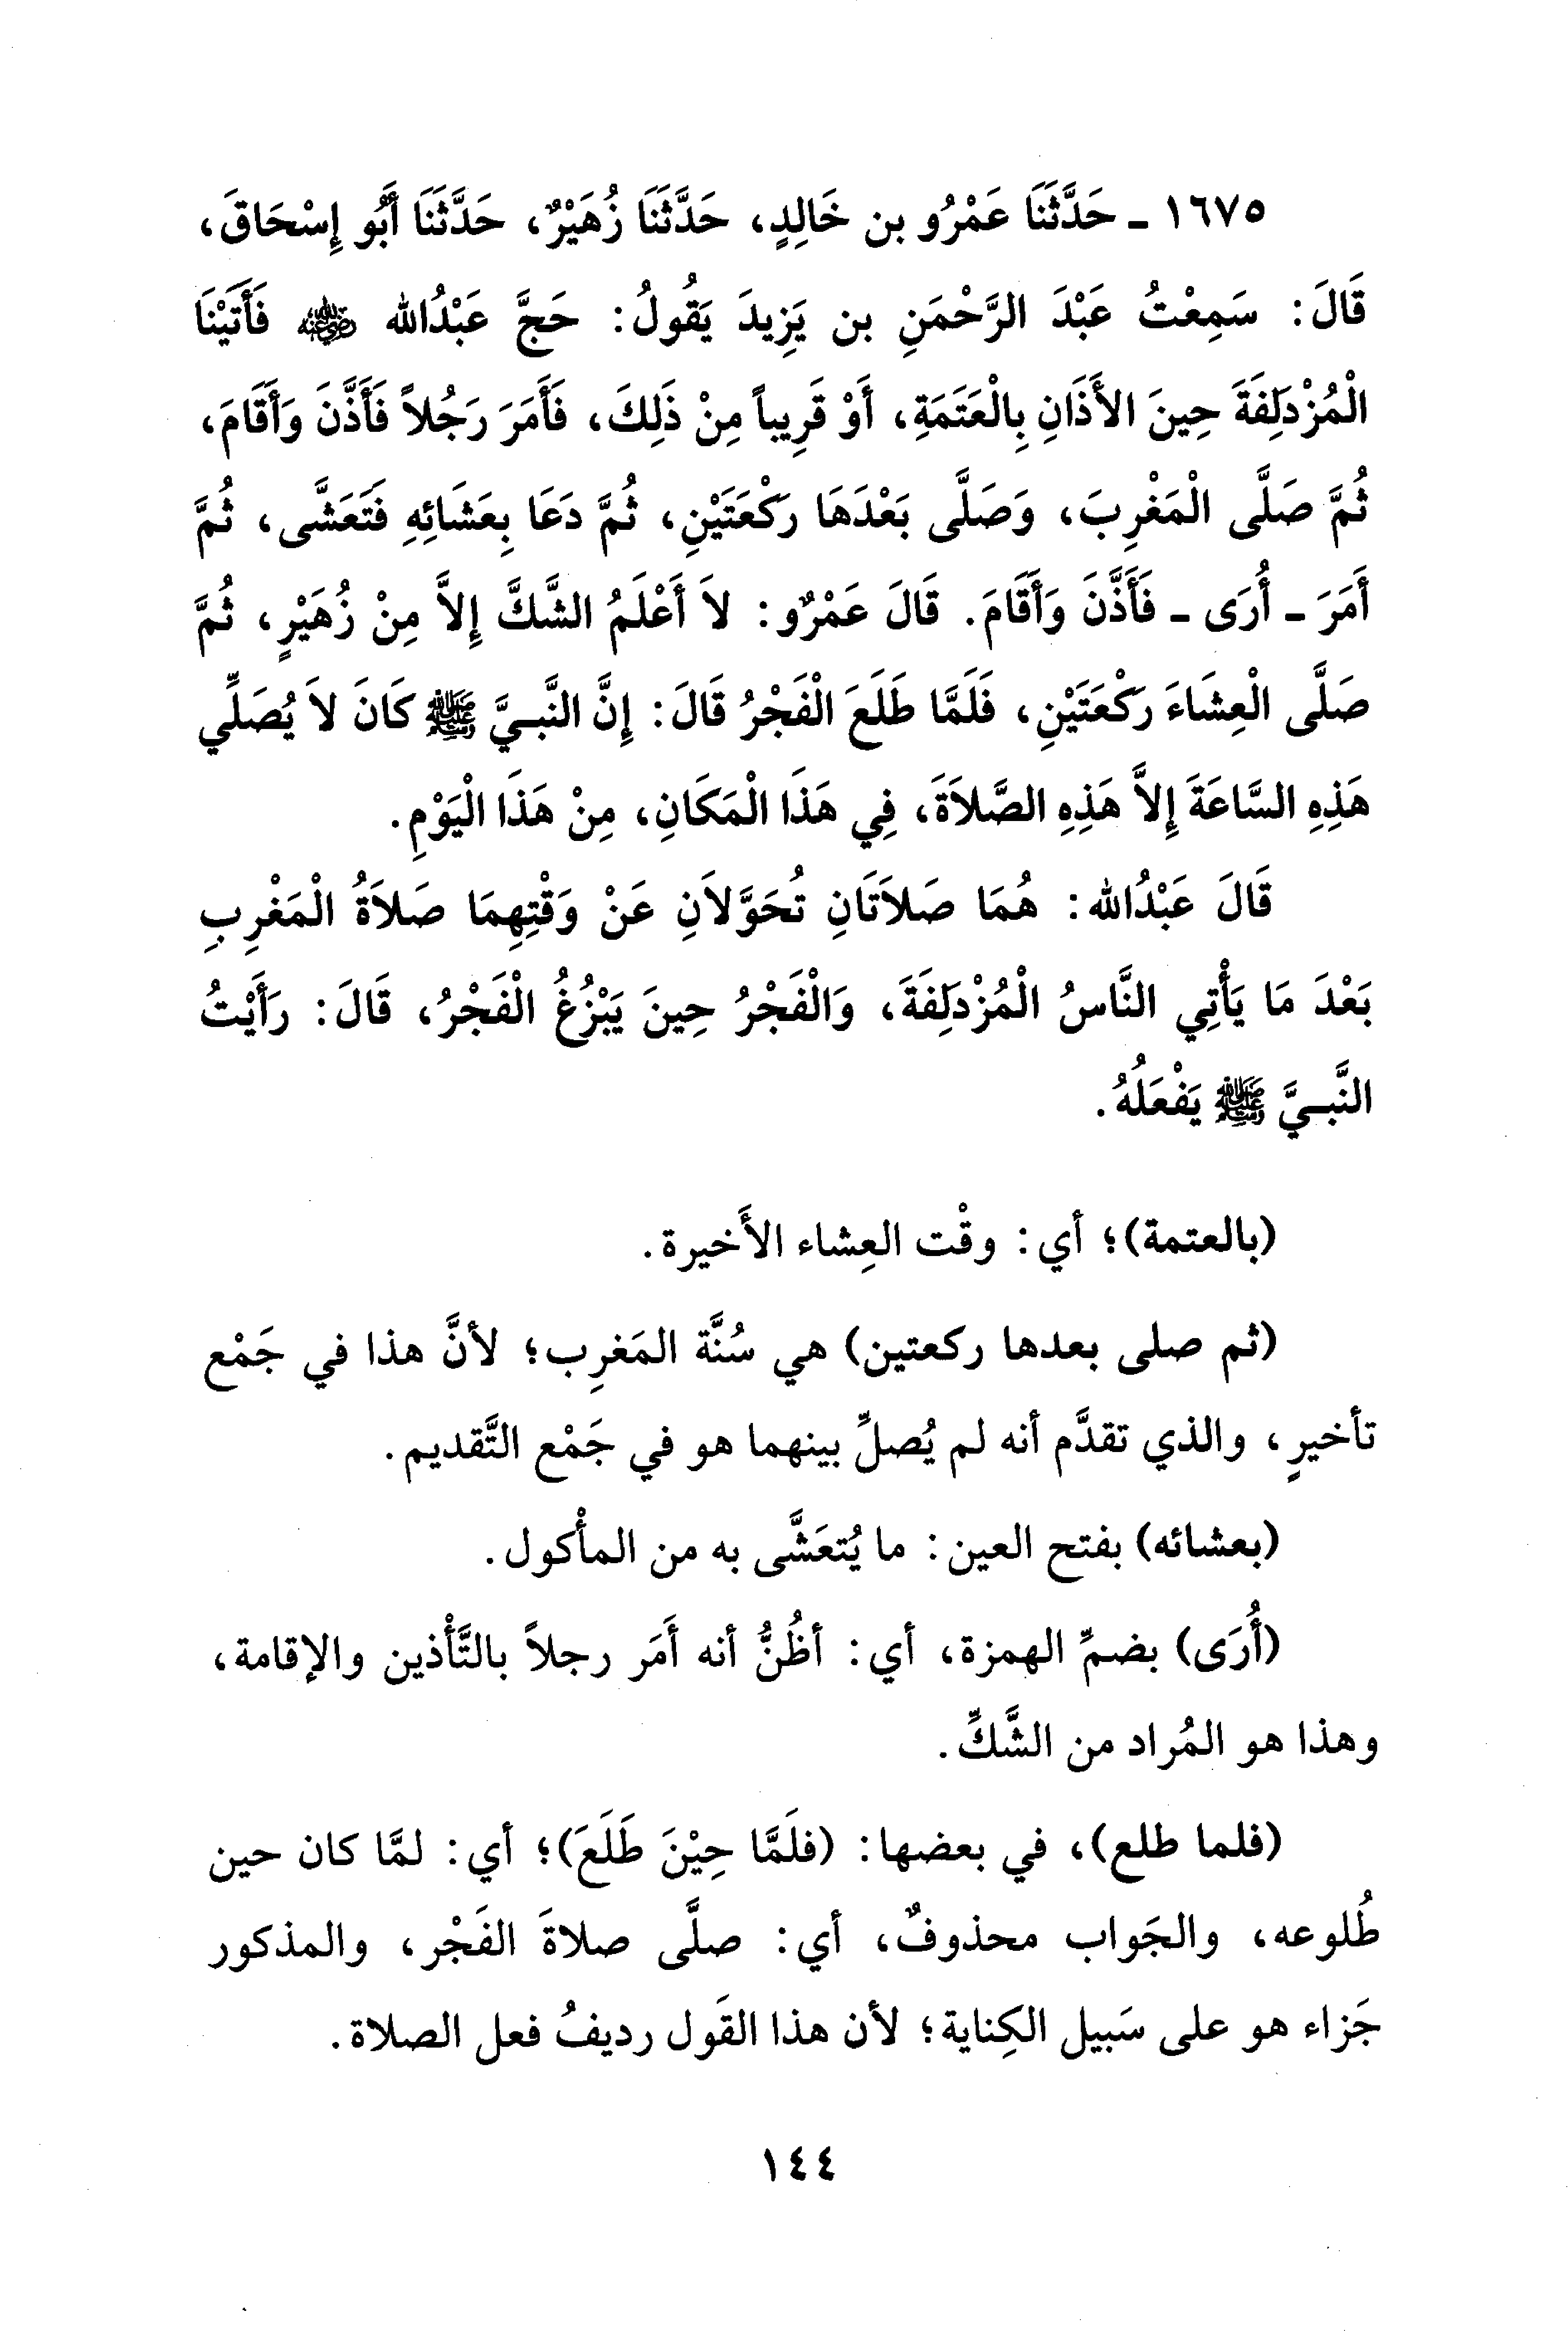 ١٦٧٥ ـ حَدَّثَنَا عَمْرُو بن خَالِدٍ، حَدَّثَنَا زُهَيْرٌ، حَدَّثَنَا أَبُو إِسْحَاقَ،
قَالَ: سَمِعْتُ عَبْدَ الرَّحْمَنِ بن يَزِيدَ يَقُولُ: حَجَّ عَبْدُالله رضي الله عنه فَأَتَيْنَا
الْمُزْدَلِفَةَ حِينَ الأَذَانِ بِالْعَتَمَةِ، أَوْ قَرِيباً مِنْ ذَلِكَ، فَأَمَرَ رَجُلاً فَأَذَّنَ وَأَقَامَ،
ثُمَّ صَلَّى الْمَغْرِبَ، وَصَلَّى بَعْدَهَا رَكْعَتَيْنِ، ثُمَّ دَعَا بِعَشَائِهِ فَتَعَشَّى، ثُمَّ
أَمَرَ ـ أُرَى ـ فَأَذَّنَ وَأَقَامَ. قَالَ عَمْرٌو: لاَ أَعْلَمُ الشَّكَّ إِلاَّ مِنْ زُهَيْرٍ، ثُمَّ
صَلَّى الْعِشَاءَ رَكْعَتَيْنِ، فَلَمَّا طَلَعَ الْفَجْرُ قَالَ: إِنَّ النَّبـِيَّ ﷺ كَانَ لاَ يُصَلِّي
هَذِهِ السَّاعَةَ إِلاَّ هَذِهِ الصَّلاَةَ، فِي هَذَا الْمَكَانِ، مِنْ هَذَا الْيَوْمِ.
قَالَ عَبْدُالله: هُمَا صَلاَتَانِ تُحَوَّلاَنِ عَنْ وَقْتِهِمَا صَلاَةُ الْمَغْرِبِ
بَعْدَ مَا يَأْتِي النَّاسُ الْمُزْدَلِفَةَ، وَالْفَجْرُ حِينَ يَبْزُغُ الْفَجْرُ، قَالَ: رَأَيْتُ
النَّبـِيَّ ﷺ يَفْعَلُهُ.
(بالعتمة)؛ أي: وقْت العِشاء الأَخيرة.
(ثم صلى بعدها ركعتين) هي سُنَّة المَغرِب؛ لأنَّ هذا في جَمْع
تأخيرٍ، والذي تقدَّم أنه لم يُصلِّ بينهما هو في جَمْع التَّقديم.
(بعشائه) بفتح العين: ما يُتعَشَّى به من المأْكول.
(أُرَى) بضمِّ الهمزة، أي: أظُنُّ أنه أَمَر رجلاً بالتَّأْذين والإقامة،
وهذا هو المُراد من الشَّكِّ.
(فلما طلع)، في بعضها: (فلَمَّا حِيْنَ طَلَعَ)؛ أي: لمَّا كان حين
طُلوعه، والجَواب محذوفٌ، أي: صلَّى صلاةَ الفَجْر، والمذكور
جَزاء هو على سَبيل الكِناية؛ لأن هذا القَول رديفُ فعل الصلاة.
١٤٤